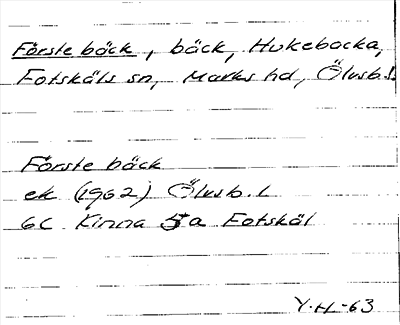 Förste bäck, bäck, Hukebacka,
Fotskäls sn, Marks hd, Älvsb.l.
Förste bäck
ek (1962) Älvsb. l
6C Kinna 5a Fotskäl
Y.H.-63